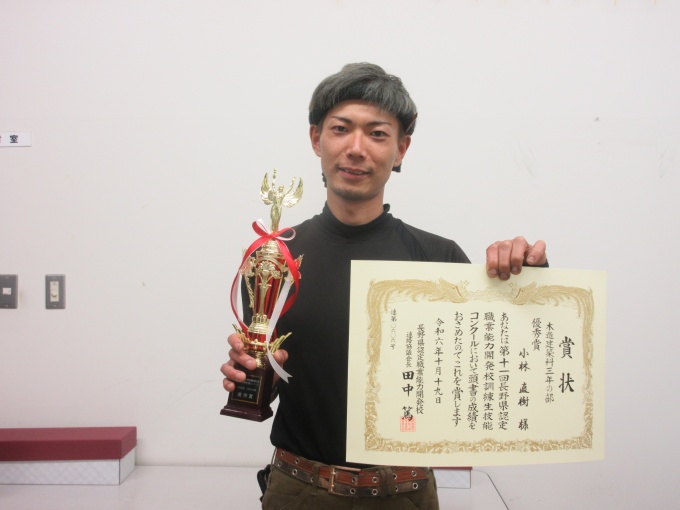 室
賞状
木造建築科三年の部
優秀賞
小林直樹様
あなたは第十一回長野県認定
職業能力開発校訓練生技能
コンクールにおいて頭書の成績を
おさめたのでこれを賞します
令和六年十月十九日
長野県認定職業能力開発校
連絡協議会長 田中篤